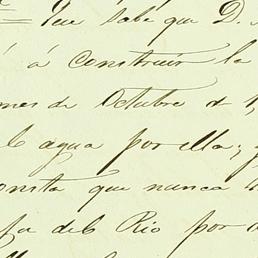 = Que sabe que D.
á construir la
mes de Octubre d 1,
agua por ella; y
consta que nunca
del Rio por